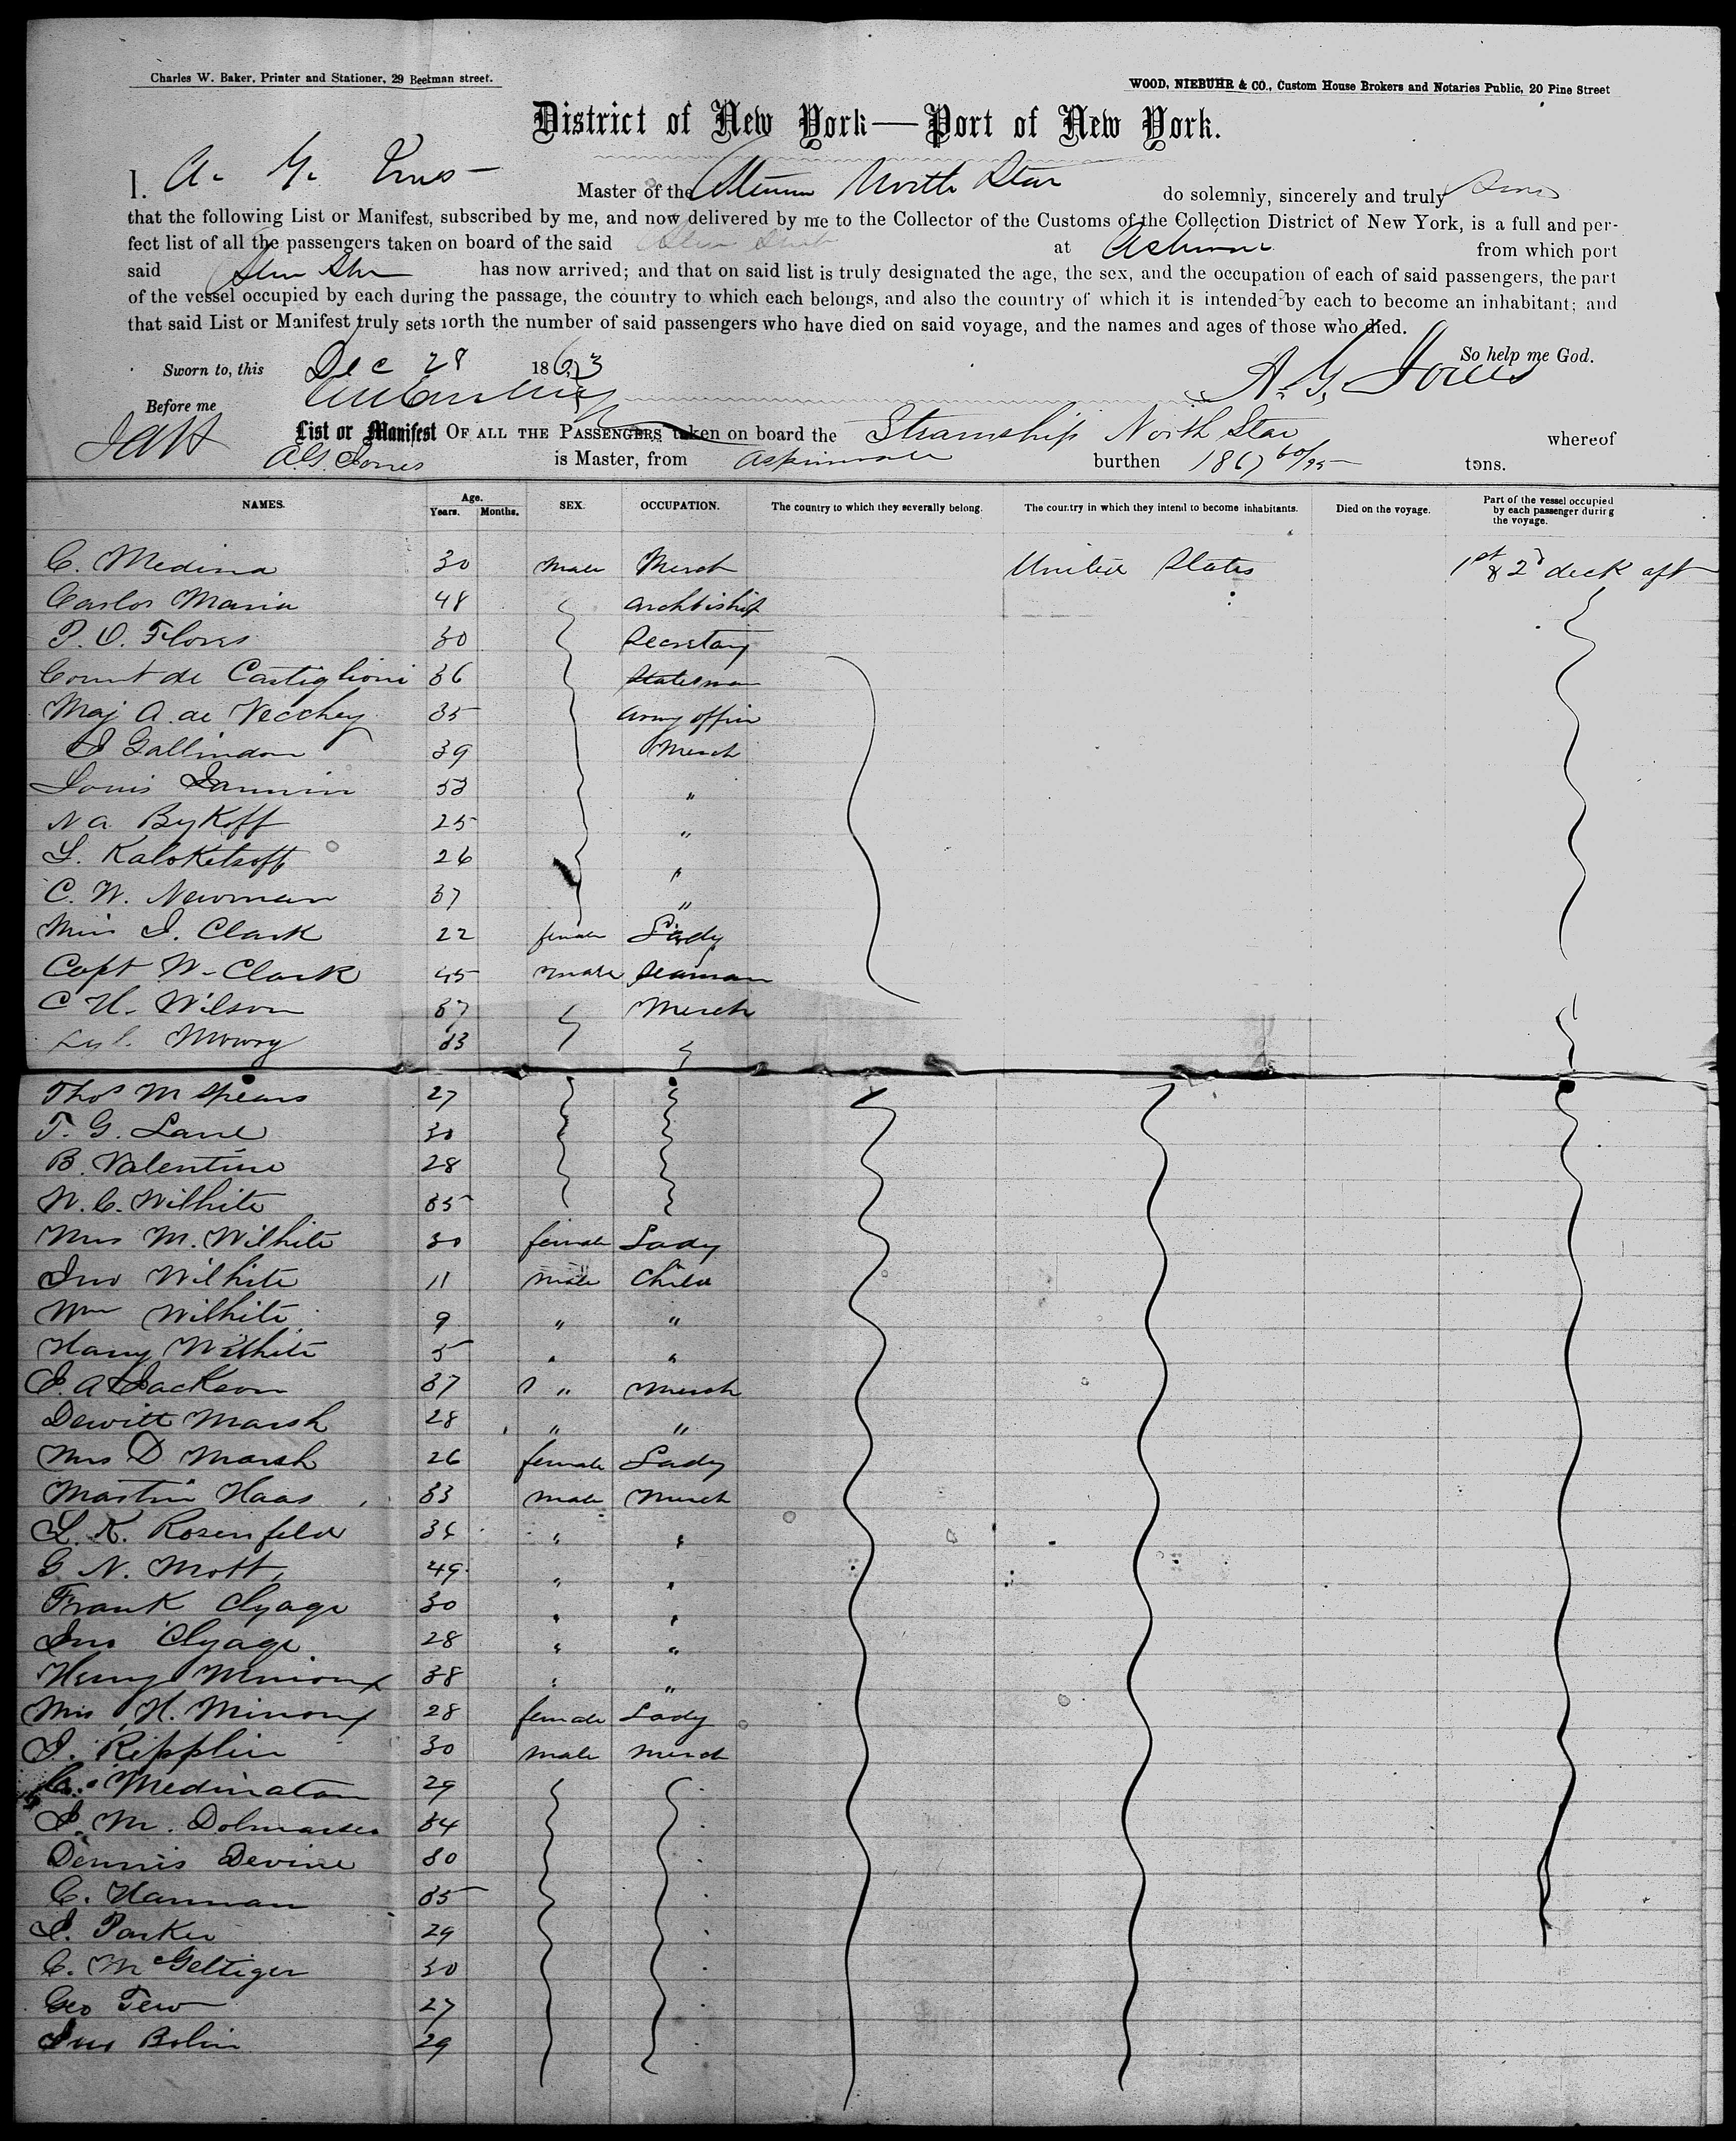 Charles W. Baker, Printer and Stationer, 29 Beekman street.
WOOD, NIEBUHR & CO., Custom House Brokers and Notaries Public, 20 Pine Street
District of New York—Port of New York.
I. A. G. Jones Master of the Steamer North Star do solemnly, sincerely and truly
that the following List or Manifest, subscribed by me, and now delivered by me to the Collector of the Customs of the Collection District of New York, is a full and per-
fect list of all the passengers taken on board of the said at from which port
said has now arrived; and that on said list is truly designated the age, the sex, and the occupation of each of said passengers, the part
of the vessel occupied by each during the passage, the country to which each belongs, and also the country of which it is intended by each to become an inhabitant; and
that said List or Manifest truly sets forth the number of said passengers who have died on said voyage, and the names and ages of those who died.
So help me God.
Sworn to, this Dec 28 1863
A. G. Jones
Before me
List or Manifest OF ALL THE PASSENGERS taken on board the Steamship North Star whereof
A.G. Jones is Master, from Aspinwall burthen 1867 60/95 tons.
NAMES. Age. Years. Months. SEX. OCCUPATION. The country to which they severally belong. The country in which they intend to become inhabitants. Died on the voyage. Part of the vessel occupied by each passenger during the voyage.
C. Medina 30 Male Merch United States 1st & 2d deck aft
Carlos Maria 48 Archbiship
P. O. Flores 30 Secretary
Count de Castiglioni 36 Statesman
Maj A. de Vecchey 35 Army offier
Gallindon 39 Merch
Louis 53 "
N a. Bykoff 25 "
L. Kaloketsoff 26 "
C. W. Newman 37 "
Miss J. Clark 22 female Lady
Capt W. Clark 45 male Seaman
C H. Wilson 37 Merch
Mowry 33
Thos M Spears 27
T. G. Lane 30
B. Valentine 28
W. C. Wilhite 35
Mrs M. Wilhite 30 female Lady
Jno Wilhite 11 male Child
Wm Wilhite 9 " "
Harry Wilhite 5 " "
J. A Jackson 37 " Merch
Dewitt Marsh 28 " "
Mrs D Marsh 26 female Lady
Martin Haas 33 male Merch
L. K. Rosenfeld 36 " "
G. N. Mott, 49 " "
Frank Clyage 30 " "
Jno Clyage 28 " "
Henry Minoux 38 " "
Mrs H. Minoux 28 female Lady
J. Ripplin 30 male Merch
C. Medinaton 29
J. M. 34
Dennis Devine 30
C. Hannan 35
J. Parker 29
C. McGeltiger 30
Geo Tew 27
Jno Bolin 29